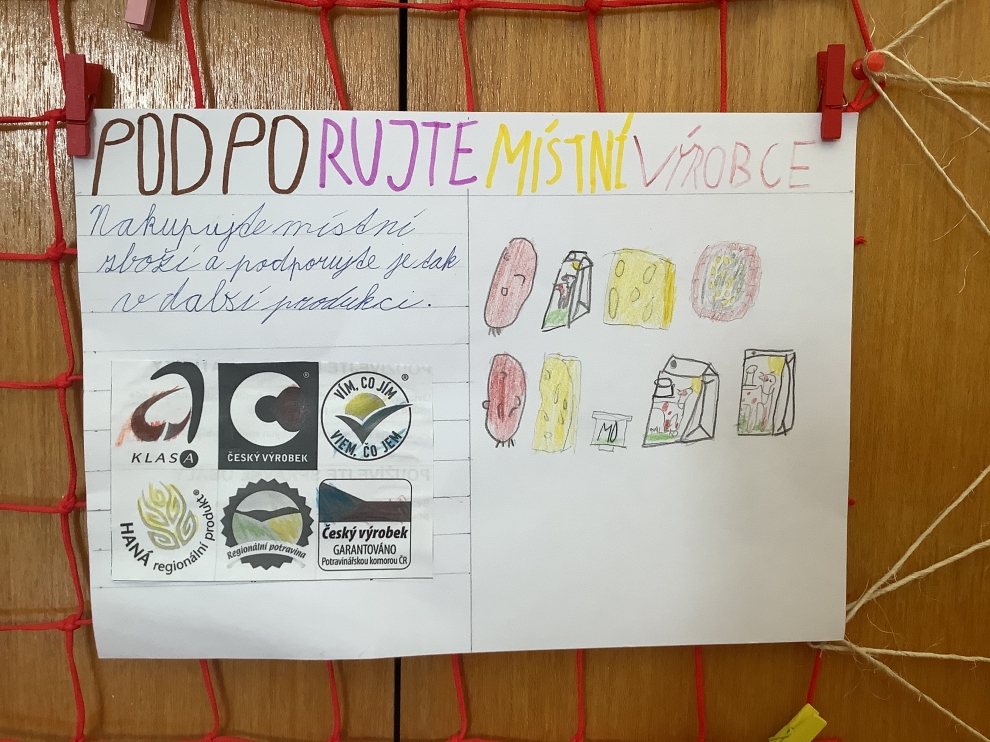 PODPORUJTE MÍSTNÍ VÝROBCE
Nakupujte místní
zboží a podporujte je tak
v dalsí produkci.
KLASA
ČESKÝ VÝROBEK
VÍM, CO JÍM
VIEM, ČO JEM
HANÁ regionální produkt®
Regionální potravina
Český výrobek
GARANTOVÁNO
Potravinářskou komorou ČR